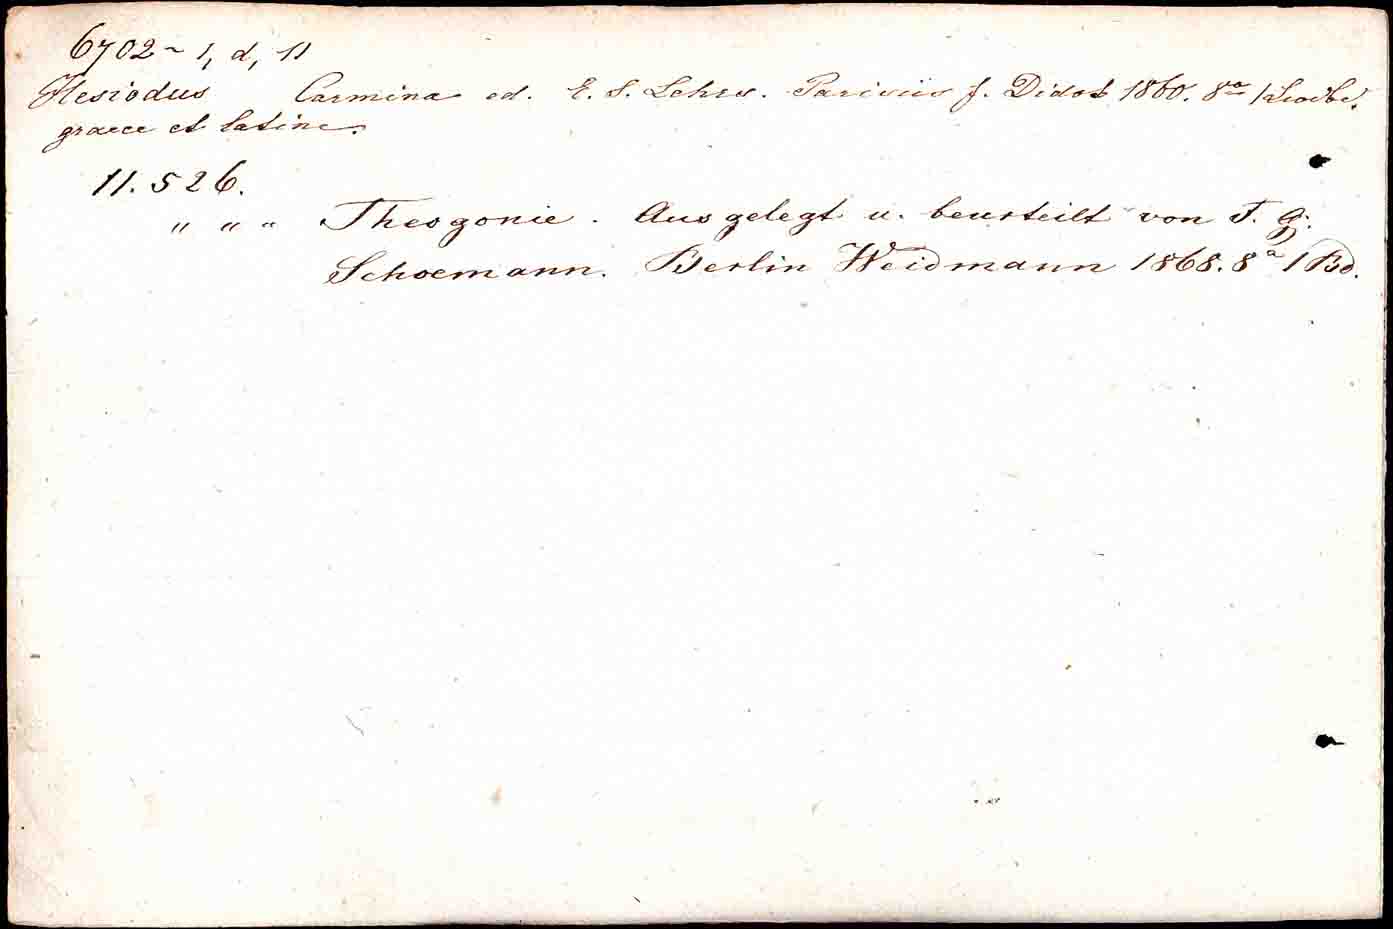 6702~ 1, d, 11
Hesiodus Carmina ed. E. S. Lehrs. Parisiis f. Didot 1860. 8a 1
graece et latine.
11.526.
" " " Theogonie. Ausgelegt u. beurteilt von F. G.
Schoemann. Berlin Weidmann 1868. 8a 1 Bd.